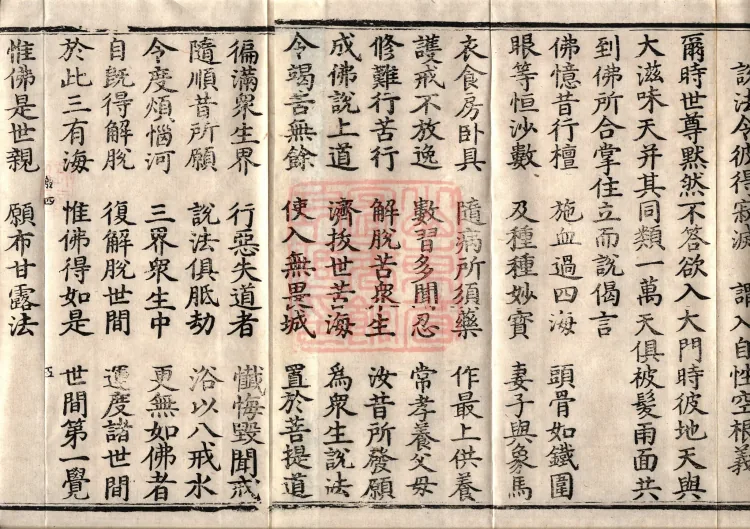 說法令彼得寂滅　謂入自性空根義
爾時世尊默然不答欲入大門時彼地天與
大滋味天并其同類一萬天俱被髮雨面共
到佛所合掌住立而說偈言
佛憶昔行檀　施血過四海　頭骨如鐵圍
眼等恒沙數　及種種妙寶　妻子與象馬
衣食房卧具　隨病所須藥　作最上供養
護戒不放逸　數習多聞忍　常孝養父母
修難行苦行　解脫苦衆生　汝昔所發願
成佛說上道　濟拔世苦海　為衆生說法
令竭苦無餘　使入無畏城　置於菩提道
徧滿衆生界　行惡失道者　懺悔毀聞戒
隨順昔所願　說法俱胝劫　浴以八戒水
令度煩惱河　三界衆生中　更無如佛者
自旣得解脫　復解脫世間　還度諸世間
於此三有海　惟佛得如是　世間第一覺
四　五
惟佛是世親　願布甘露法